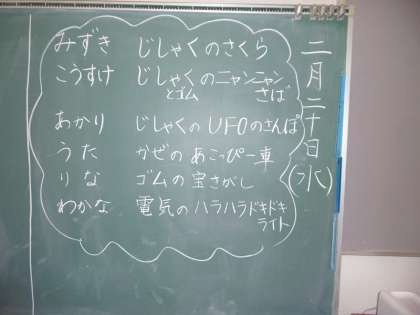 二月二十日(水)
みずき じしゃくのさくら
こうすけ じしゃくのニャンニャン
とゴム さば
あかり じしゃくのUFOのさんぽ
うた かぜのあこっぴー車
りな ゴムの宝さがし
わかな 電気のハラハラドキドキ
ライト